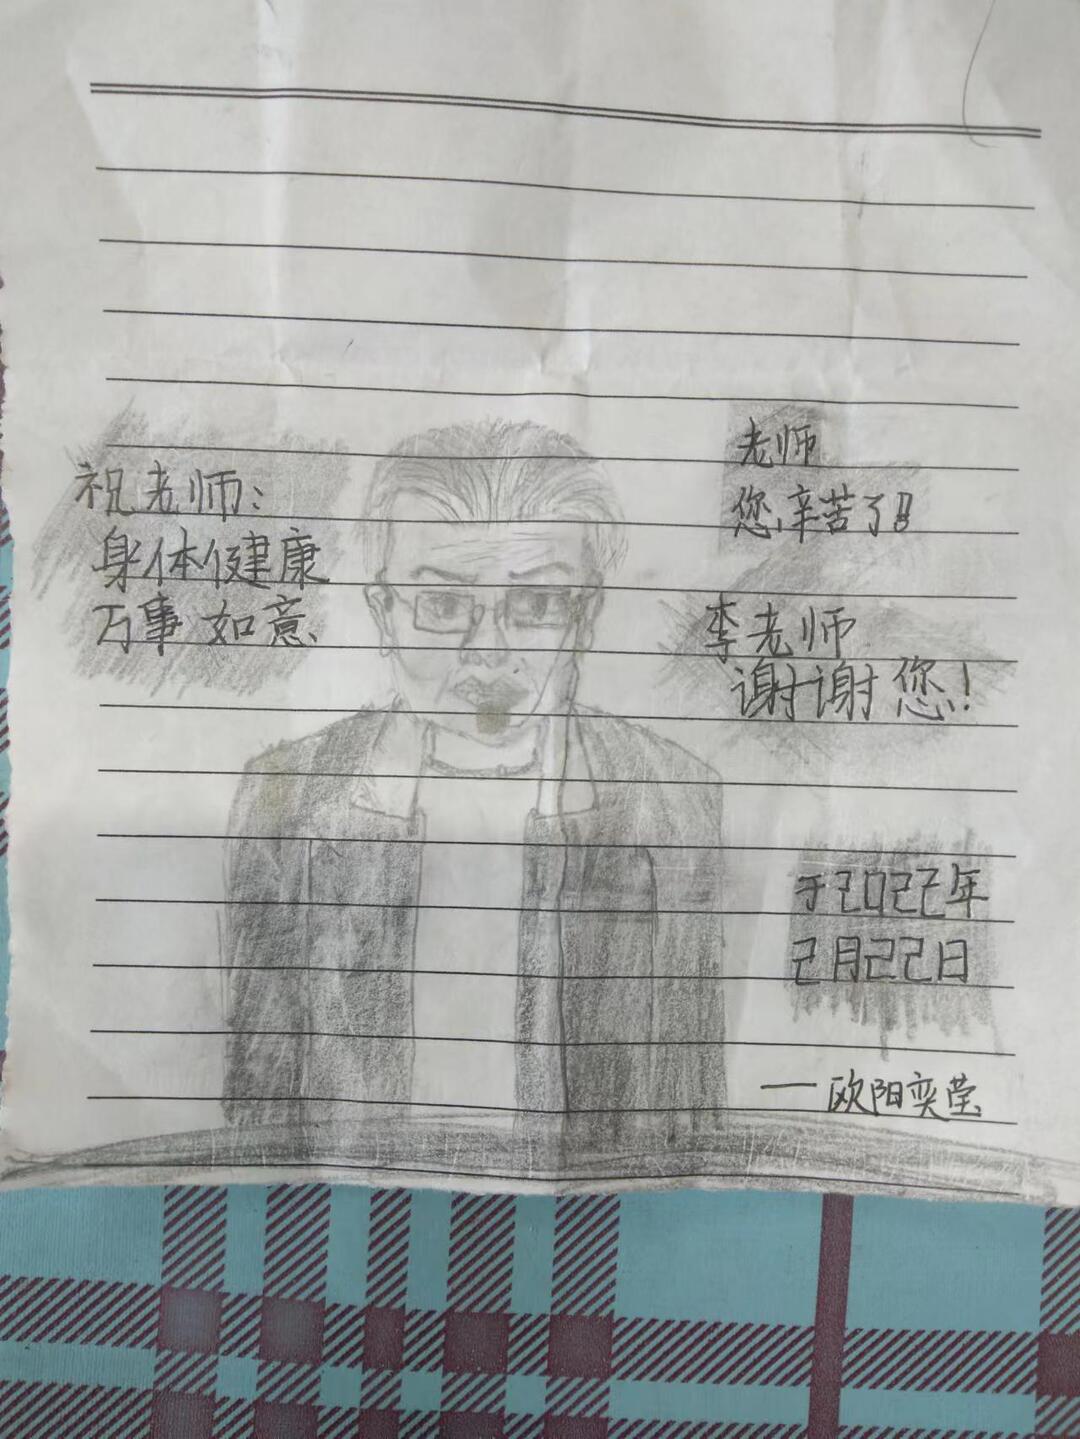 祝老师:
身体健康
万事如意
老师
您辛苦了!!
李老师
谢谢您!
于2022年
2月22日
——欧阳奕莹